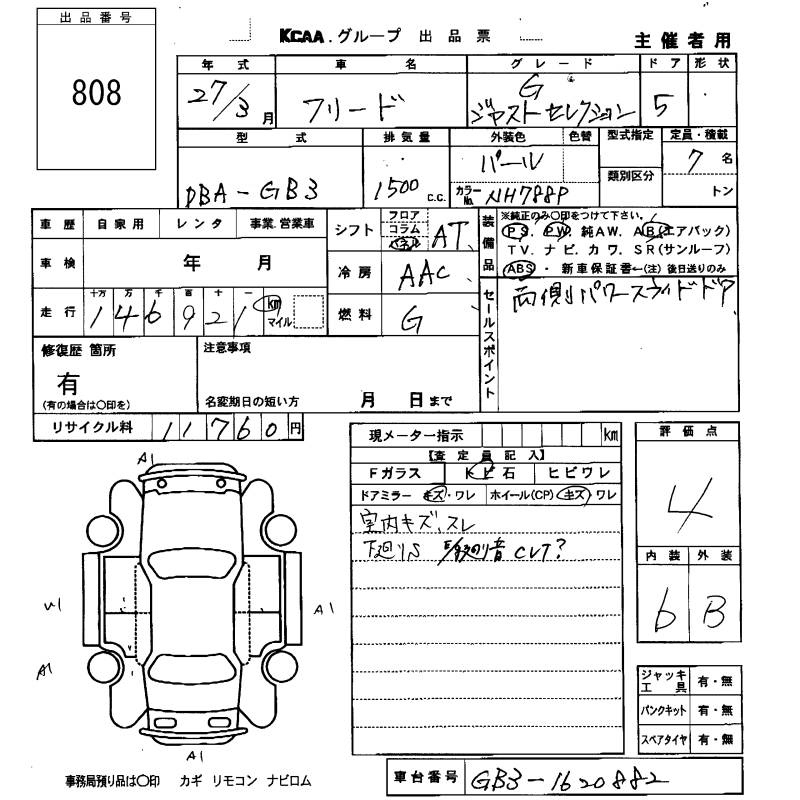 出品番号
808
KCAA.グループ 出品票
主催者用
年式 車名 グレード ドア 形状
27/3月 フリード G ジャストセレクション 5
型式 排気量 外装色 色替 型式指定 定員・積載
DBA-GB3 1500 C.C. パール 類別区分 7名
カラーNo. NH788P トン
車歴 自家用 レンタ 事業.営業車
車検 年 月
走行 十万 万 千 百 十 一
146921 km マイル
シフト フロア コラム パネル AT
冷房 AAC
燃料 G
装備品
※純正のみ〇印をつけて下さい。
PS. PW. 純AW. AB(エアバッグ)
TV. ナビ. カワ. SR(サンルーフ)
ABS ・ 新車保証書←(注) 後日送りのみ
セールスポイント
両側パワースライドドア
修復歴 箇所
有
(有の場合は〇印を)
注意事項
名変期日の短い方 月 日まで
リサイクル料 11760円
現メーター指示 km
【査定員記入】
Fガラス トビ石 ヒビワレ
ドアミラー キズ・ワレ ホイール(CP) キズ・ワレ
室内キズ、スレ
下廻りS 音 CVT?
評価点
4
内装 外装
6 B
ジャッキ工具 有・無
パンクキット 有・無
スペアタイヤ 有・無
A1
A1
A1
A1
事務局預り品は〇印 カギ リモコン ナビロム
車台番号 GB3-1620882